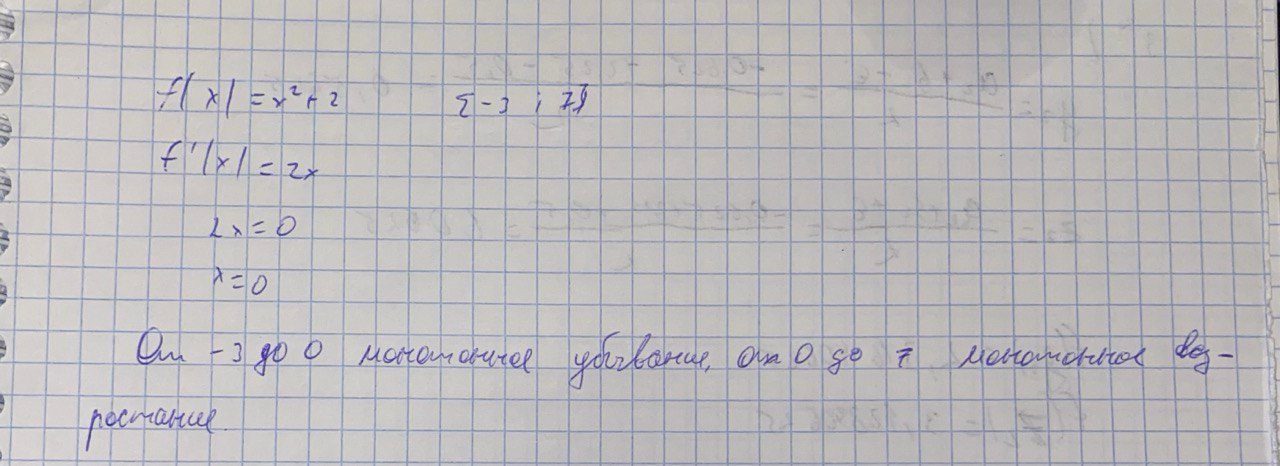 f(x) = x² + 2 [-3 ; 7]
f'(x) = 2x
2x = 0
x = 0
От -3 до 0 монотонное убывание, от 0 до 7 монотонное воз-
ростание.